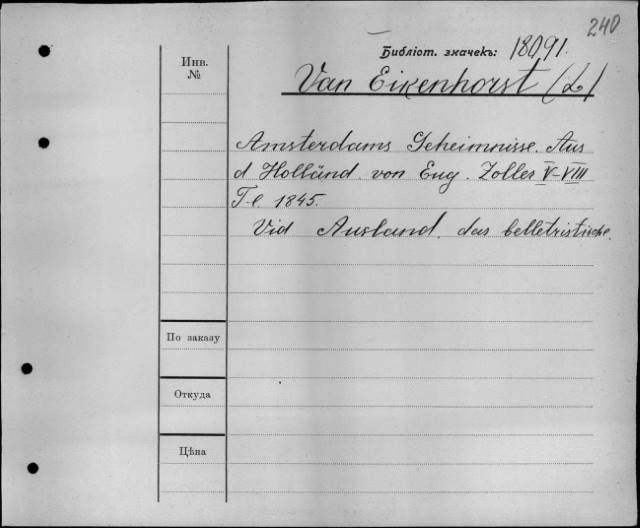 240
Библіот. значекъ: 18091.
Инв.
№
Van Eikenhorst (L)
Amsterdams Geheimnisse. Aus
d Holländ. von Eug. Zoller V–VIII
T-l. 1845.
Vid Ausland, das belletristische.
По заказу
Откуда
Цѣна